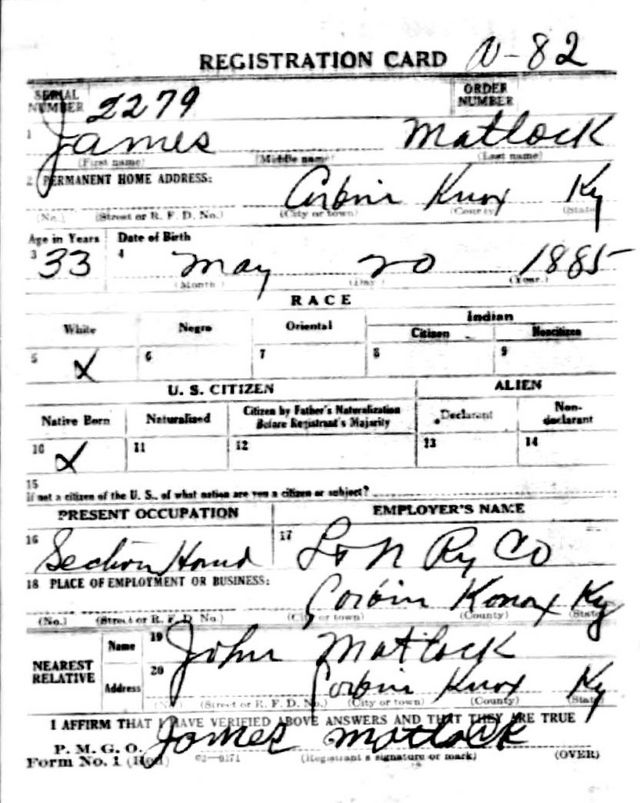 REGISTRATION CARD N-82
SERIAL NUMBER 2279 ORDER NUMBER
1 James Matlock
(First name) (Middle name) (Last name)
2 PERMANENT HOME ADDRESS:
Corbin Knox Ky
(No.) (Street or R. F. D. No.) (City or town) (County) (State)
Age in Years Date of Birth
3 33 4 May 20 1885
(Month) (Day) (Year)
RACE
White Negro Oriental Indian
Citizen Noncitizen
5 X 6 7 8 9
U. S. CITIZEN ALIEN
Native Born Naturalized Citizen by Father's Naturalization Before Registrant's Majority Declarant Non-declarant
10 X 11 12 13 14
15
If not a citizen of the U. S., of what nation are you a citizen or subject?
PRESENT OCCUPATION EMPLOYER'S NAME
16 Section Hand 17 L & N Ry Co
18 PLACE OF EMPLOYMENT OR BUSINESS:
Corbin Konox Ky
(No.) (Street or R. F. D. No.) (City or town) (County) (State)
NEAREST RELATIVE
Name 19 John Matlock
Address 20 Corbin Knox Ky
(No.) (Street or R. F. D. No.) (City or town) (County) (State)
I AFFIRM THAT I HAVE VERIFIED ABOVE ANSWERS AND THAT THEY ARE TRUE
P. M. G. O.
Form No. 1 (Red) James Matlock
(Registrant's signature or mark) (OVER)